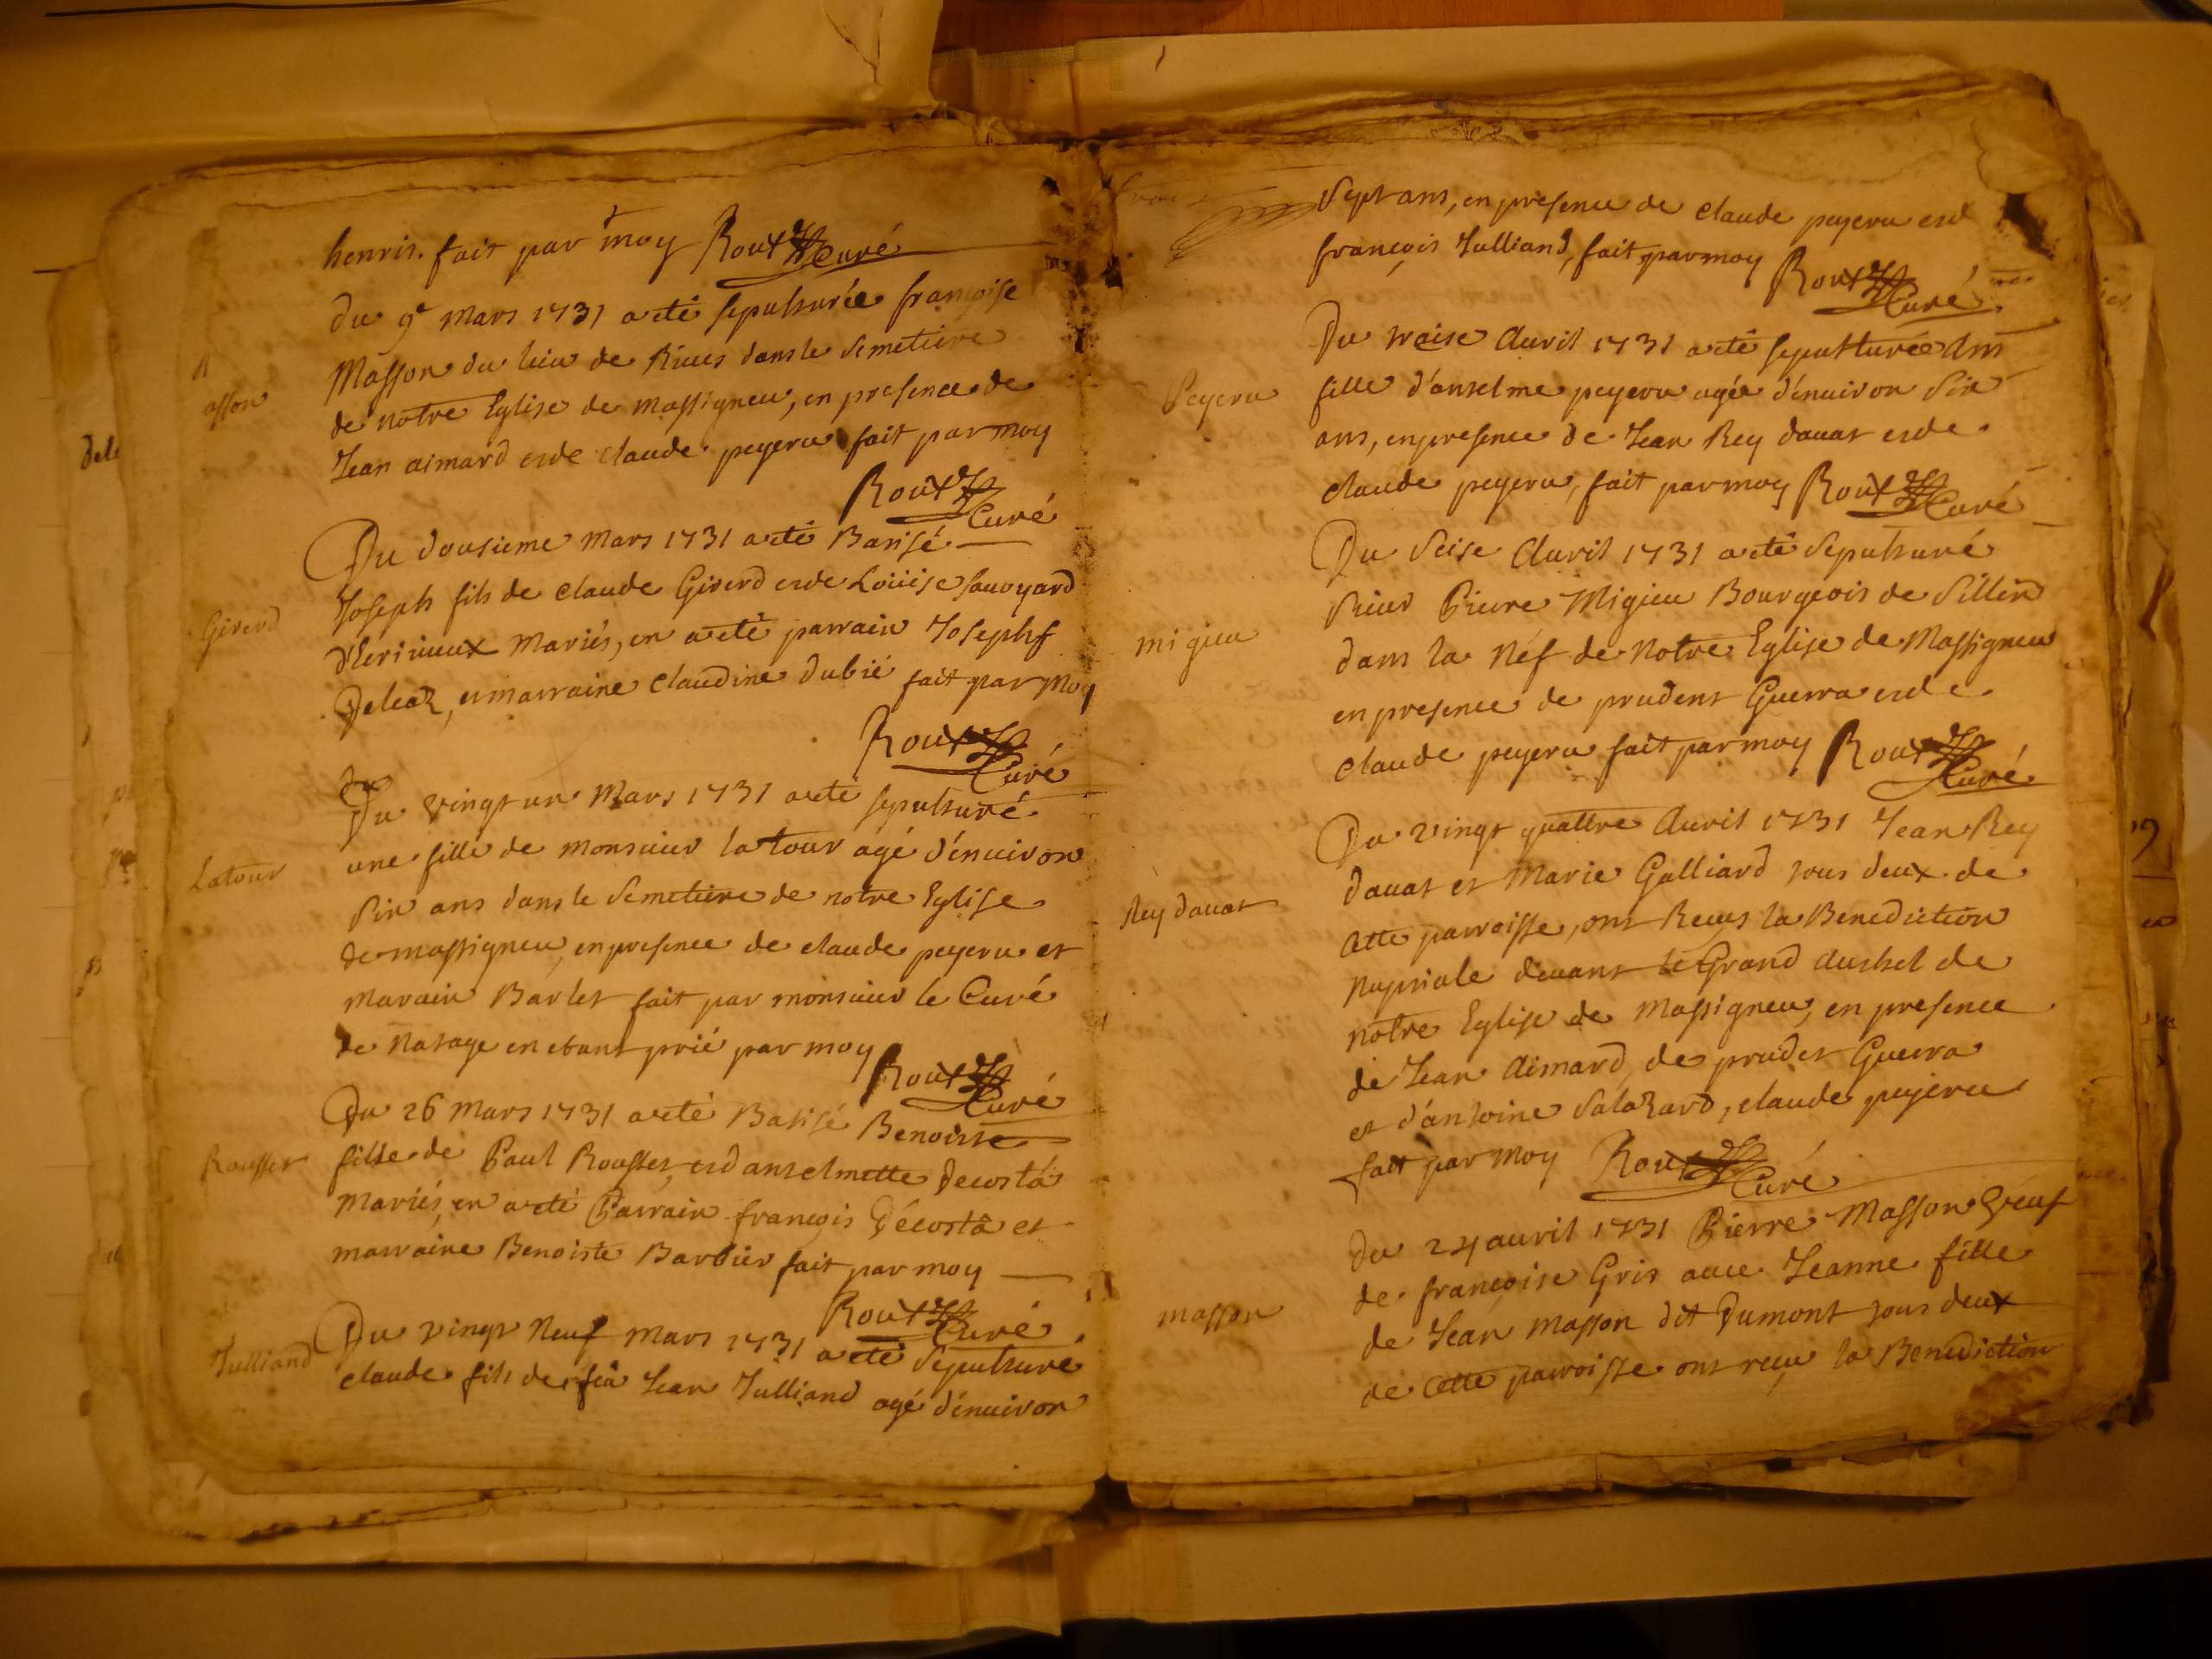 henris. fait par moy Roux Curé
du 9e mars 1731 a eté sepulturée françoise
Masson du lieu de Rives dans le semetiere
de notre Eglise de massigneu, en presence de
Jean aimard et de claude peyeru fait par moy
Roux Curé
asson
Du dousieme mars 1731 a eté Batisé
Joseph fils de claude Giverd et de Loüise savoyard
Giverd
mariés, en a eté parrain Joseph
et marraine claudine dubié fait par moy
Roux Curé
Du vingt un mars 1731 a eté sepulturé
une fille de monsieur la tour agé d'énuiron
Latour
six ans dans le semetiere de notre Eglise
de massigneu, en presence de claude peyeru et
Barlet fait par monsieur le Curé
de Natage en etant prié par moy
Roux Curé
Du 26 mars 1731 a eté Batisé Benoiste
Rousset
fille de Paul Rousset, et d'anselmette Decosta
mariés, en a eté Parrain françois Décosta et
marraine Benoiste Barbier fait par moy
Roux Curé
Du vingt neuf mars 1731 a eté sepulturé
Julliand
claude fils de feü Jean Julliand agé d'énuiron
sept ans, en presence de claude peyeru et d
françois Julliand, fait par moy
Roux Curé
Du traise Auril 1731 a eté sepulturée
Peyeru
fille d'anselme peyeru agée d'énuiron six
ans, en presence de Jean Rey dauat et de
claude peyeru, fait par moy Roux Curé
Du seise Auril 1731 a eté sepulturé
sieur Pierre Migieu Bourgeois de Sillin
migieu
dans la Néf de notre Eglise de Massigneu
en presence de prudent Guerra et de
claude peyeru fait par moy Roux Curé
Du vingt quattre Auril 1731 Jean Rey
dauat et Marie Galliard tous deux de
Rey dauat
cette parroisse, ont Receus la Benediction
nuptiale deuant le Grand Authel de
notre Eglise de Massigneu, en presence
de Jean Aimard, de prudet Guerra
et d'antoine Salazard, claude peyeru
fait par moy Roux Curé
du 24 auril 1731 Pierre Masson veuf
de françoise Gris auec Jeanne fille
masson
de Jean masson dit Dumont tous deux
de cette parroisse ont reçu la Benediction